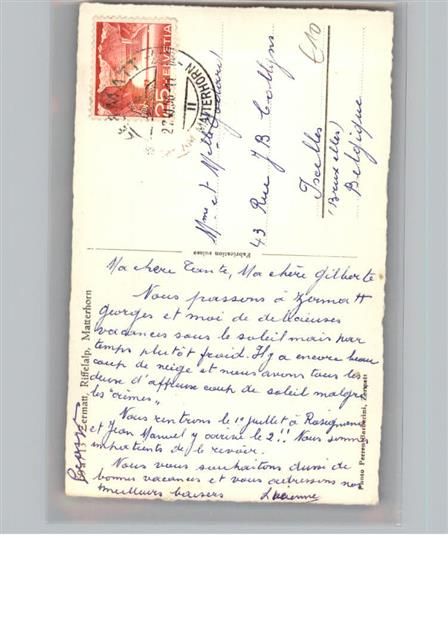 HELVETIA
MATTERHORN
11
Mme et Melle
43 Rue J B
Ixelles
(Bruxelles)
Belgique
Fabrication suisse
Ma chère Tante, Ma chère Gilberte
Nous passons à Zermatt
Georges et moi de délicieuses
vacances sous le soleil mais par
temps plutôt froid. Il y a encore beau
coup de neige et nous avons tous les
deux d'affreux coup de soleil malgré
les "crèmes".
Nous rentrons le 1er juillet à
et Jean Manuel y arrive le 2!! Nous sommes
impatients de le revoir.
Nous vous souhaitons aussi de
bonnes vacances et vous adressons nos
meilleurs baisers Lucienne
Zermatt, Riffelalp, Matterhorn
Photo Perren-Barberini, Zermatt